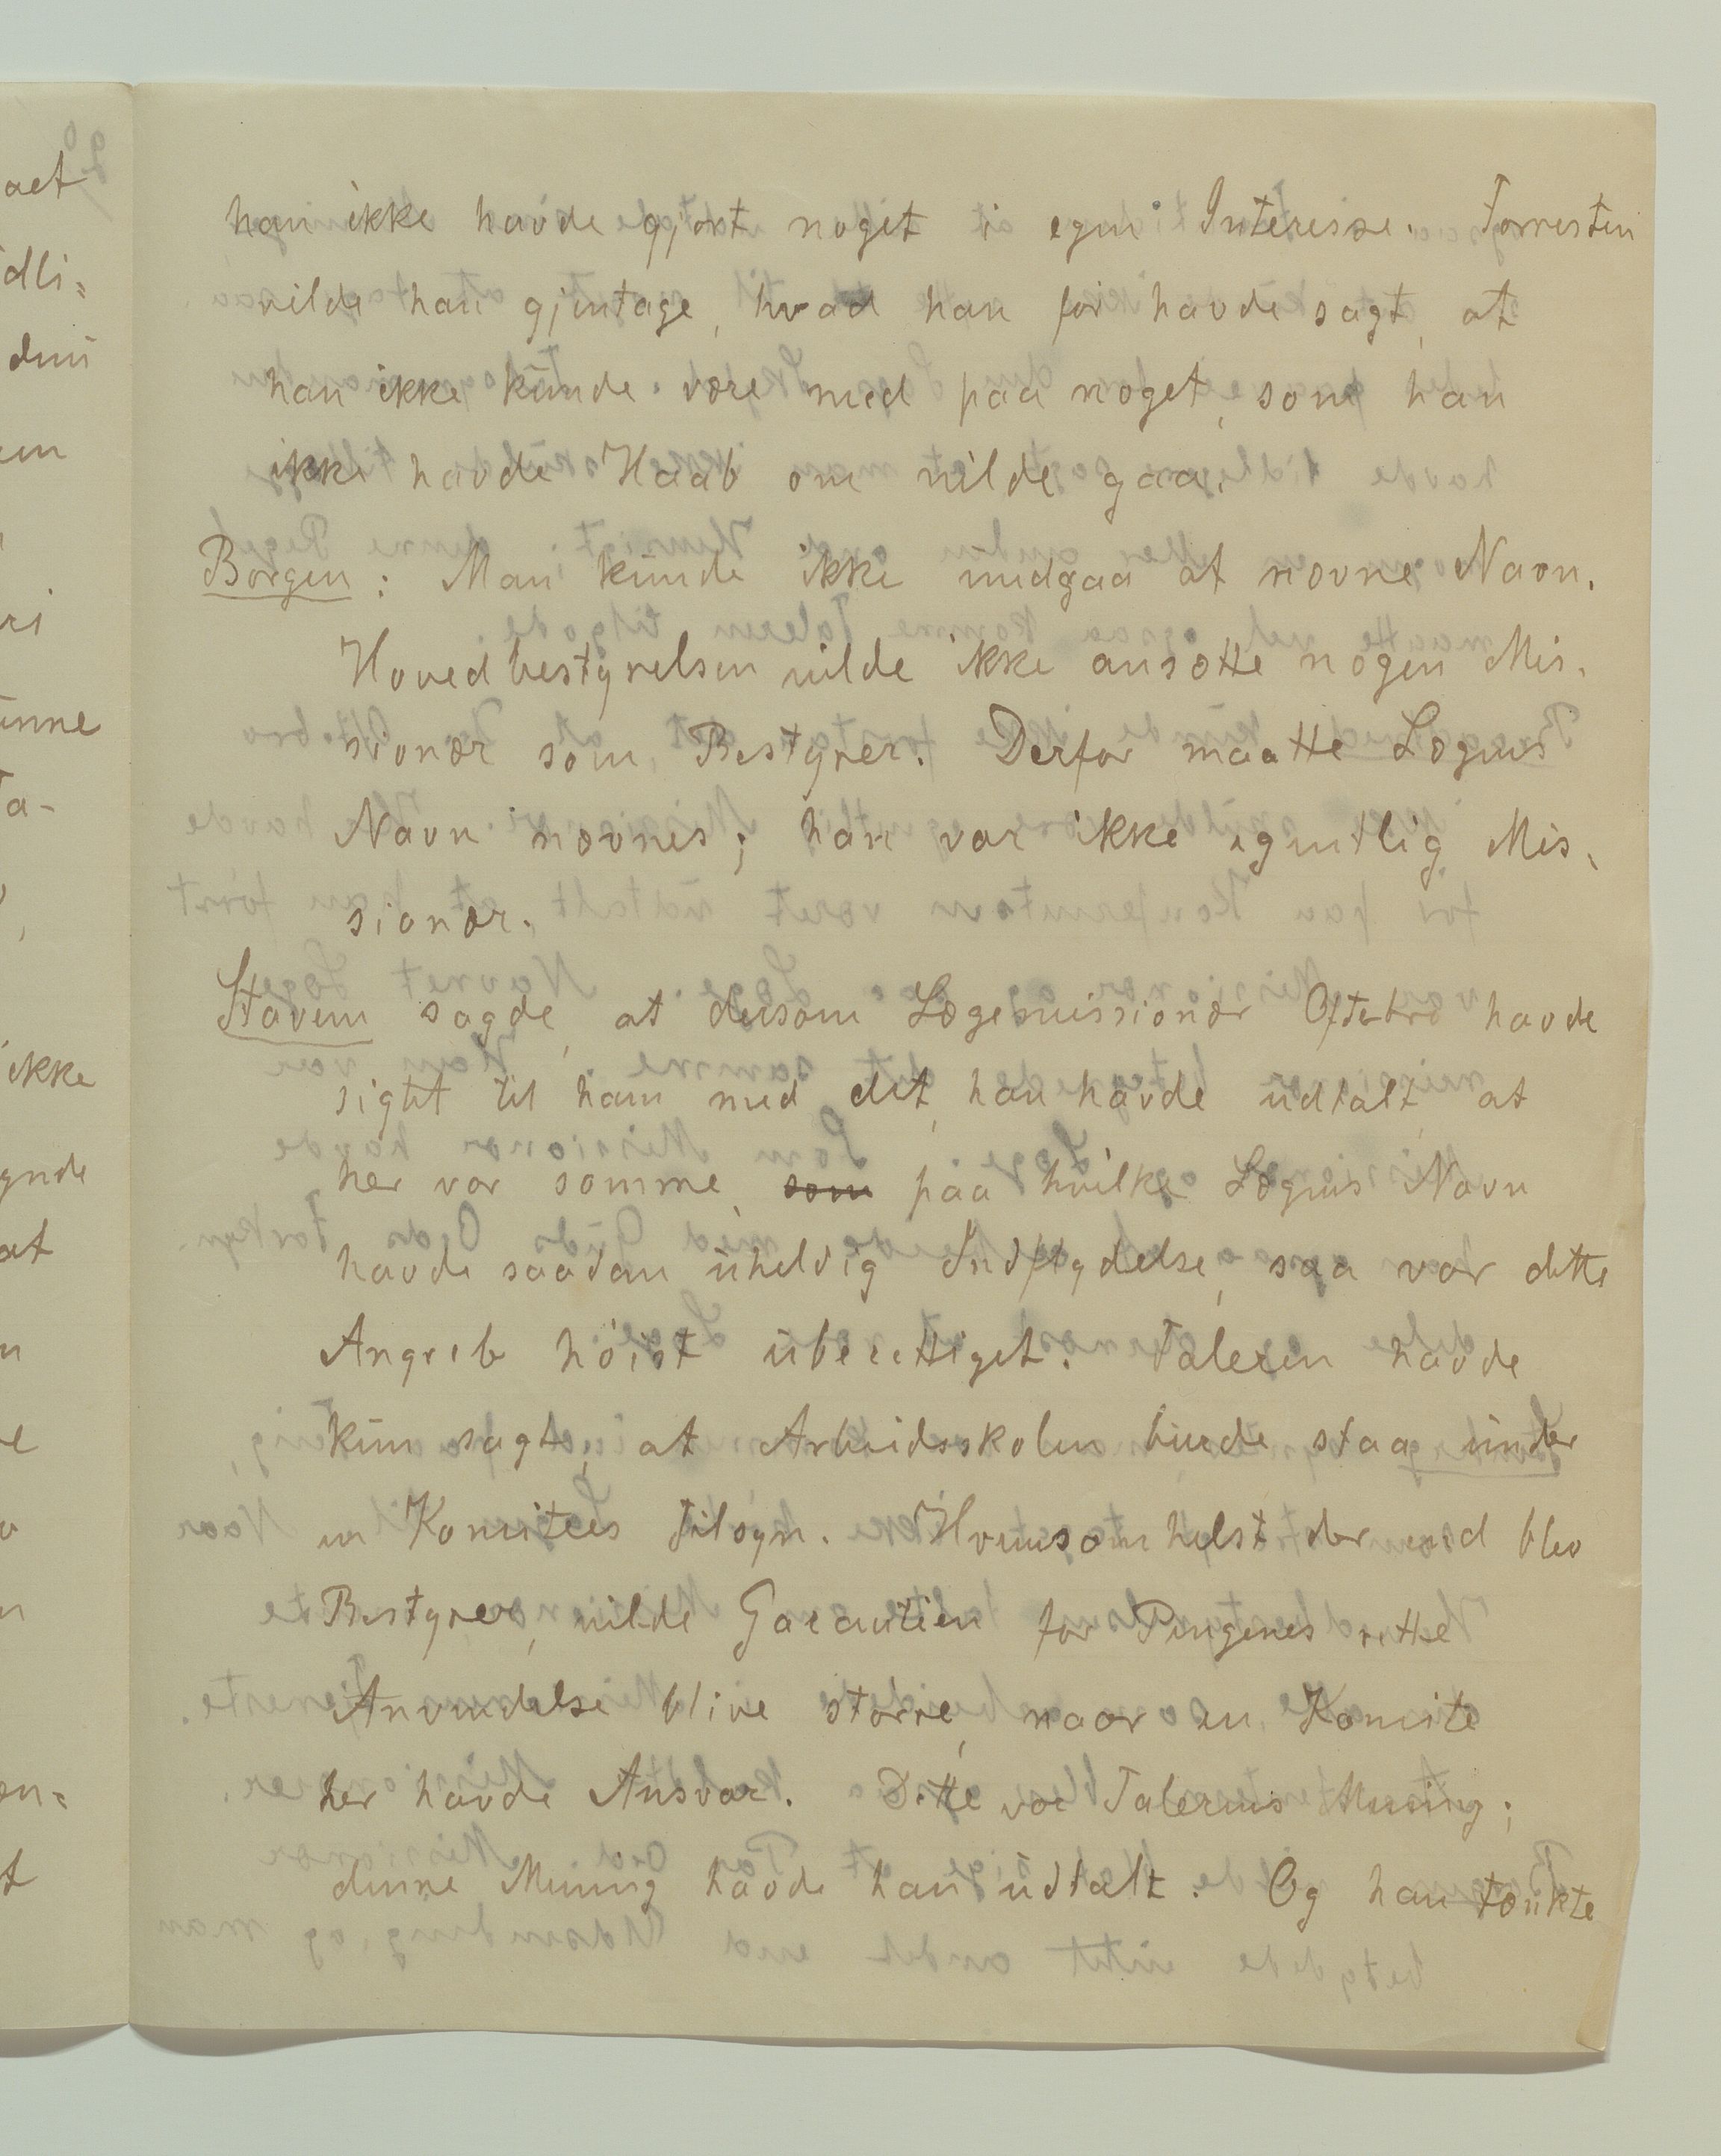 han ikke havde gjort noget i egen Interesse. Forresten
vilde han gjentage, hvad han før havde sagt, at
han ikke kunde være med paa noget, som han
ikke havde Haab om vilde gaa.
Borgen: Man kunde ikke undgaa at nævne Navn.
Hovedbestyrelsen vilde ikke ansætte nogen Mis-
sionær som Bestyrer. Derfor maatte Lægens
Navn nævnes; han var ikke egentlig Mis-
sionær.
Stavem sagde, at dersom Lægemissionær Oftebro havde
sigtet til ham med det, han havde udtalt, at
her var somme, som paa hvilke Lægens Navn
havde saadan uheldig Indflydelse, saa var dette
Angreb höist uberettiget. Taleren havde
kun sagt, at Arbeidsskolen burde staa under
en Komitees Tilsyn. Hvemsomhelst der end blev
Bestyrer, vilde Garantien for Pengenes rette
Anvendelse blive større, naar en Komite
her havde Ansvar. Dette var Talerens Mening;
denne Mening havde han udtalt. Og han tænkte
aet
idli=
den
ri
unne
Ta-
ikke
ynde
at
on=
t